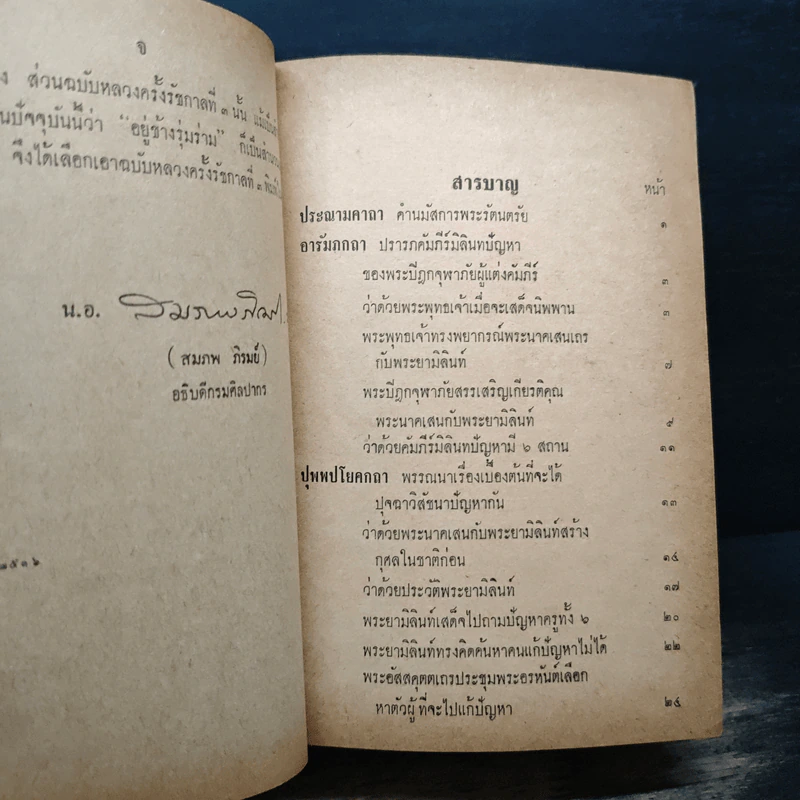 จ
ส่วนฉบับหลวงครั้งรัชกาลที่ ๓ นั้น
นปัจจุบันนี้ว่า “อยู่ข้างรุ่มร่าม”
จึงได้เลือกเอาฉบับหลวงครั้งรัชกาลที่ ๓
น.อ.
( สมภพ ภิรมย์ )
อธิบดีกรมศิลปากร
๒๕๑๖
สารบาญ
หน้า
ประณามคาถา คำนมัสการพระรัตนตรัย ๑
อารัมภกถา ปรารภคัมภีร์มิลินทปัญหา
ของพระปีฎกจุฬาภัยผู้แต่งคัมภีร์ ๓
ว่าด้วยพระพุทธเจ้าเมื่อจะเสด็จนิพพาน ๓
พระพุทธเจ้าทรงพยากรณ์พระนาคเสนเถร
กับพระยามิลินท์ ๗
พระปีฎกจุฬาภัยสรรเสริญเกียรติคุณ
พระนาคเสนกับพระยามิลินท์ ๙
ว่าด้วยคัมภีร์มิลินทปัญหามี ๖ สถาน ๑๑
ปุพพปโยคกถา พรรณนาเรื่องเบื้องต้นที่จะได้
ปุจฉาวิสัชนาปัญหากัน ๑๓
ว่าด้วยพระนาคเสนกับพระยามิลินท์สร้าง
กุศลในชาติก่อน ๑๔
ว่าด้วยประวัติพระยามิลินท์ ๑๗
พระยามิลินท์เสด็จไปถามปัญหาครูทั้ง ๖ ๒๐
พระยามิลินท์ทรงคิดค้นหาคนแก้ปัญหาไม่ได้ ๒๒
พระอัสสคุตตเถรประชุมพระอรหันต์เลือก
หาตัวผู้ที่จะไปแก้ปัญหา ๒๔